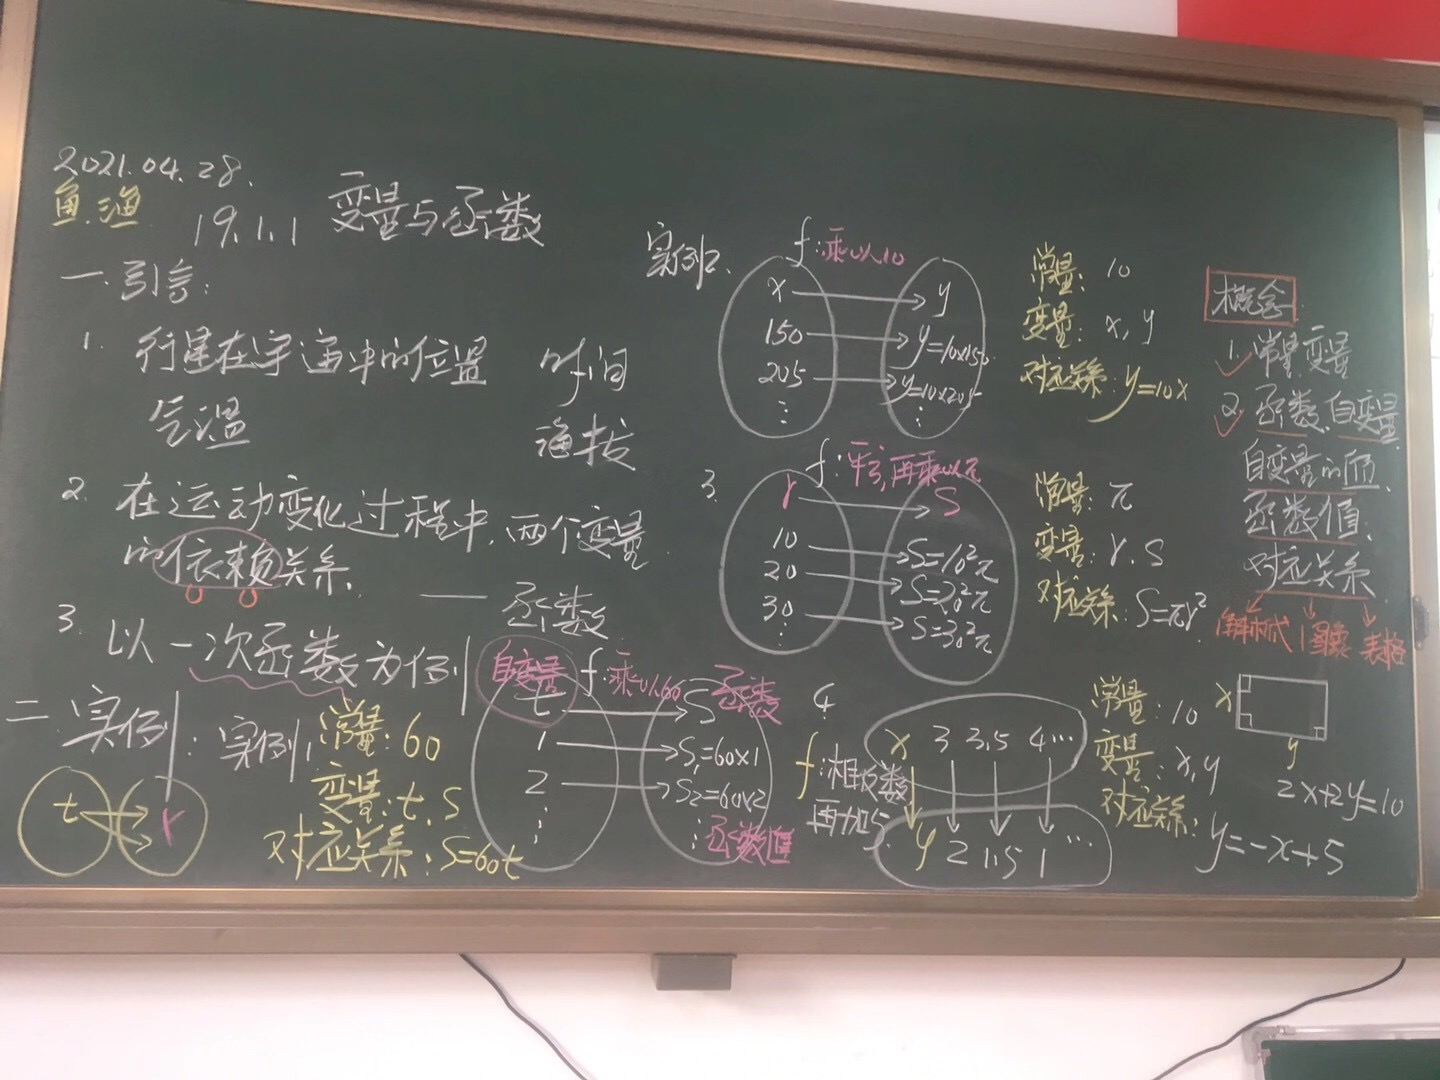 2021.04.28.
鱼.渔
19.1.1 变量与函数
一.引言:
1. 行星在宇宙中的位置 时间
气温 海拔
2. 在运动变化过程中,两个变量
的依赖关系. —— 函数
3. 以一次函数为例
二.实例: 实例1
常量: 60
变量: t, S
对应关系: S=60t
t r
f:乘以60
自变量 函数
t S
1 S1=60×1
2 S2=60×2
⋮ ⋮
函数值
实例2.
f:乘以10
x y
150 y=10×150
205 y=10×205
⋮ ⋮
常量: 10
变量: x, y
对应关系: y=10x
3. f:平方,再乘以π
r S
10 S=10²π
20 S=20²π
30 S=30²π
⋮
常量: π
变量: r. S
对应关系: S=πr²
4
f:相反数
再加5
x 3 3.5 4 …
y 2 1.5 1 …
常量: 10
变量: x, y
对应关系:
y=-x+5
x
y
2x+2y=10
概念
1. 常量,变量
2. 函数,自变量
自变量的值,
函数值,
对应关系
解析式 图象 表格